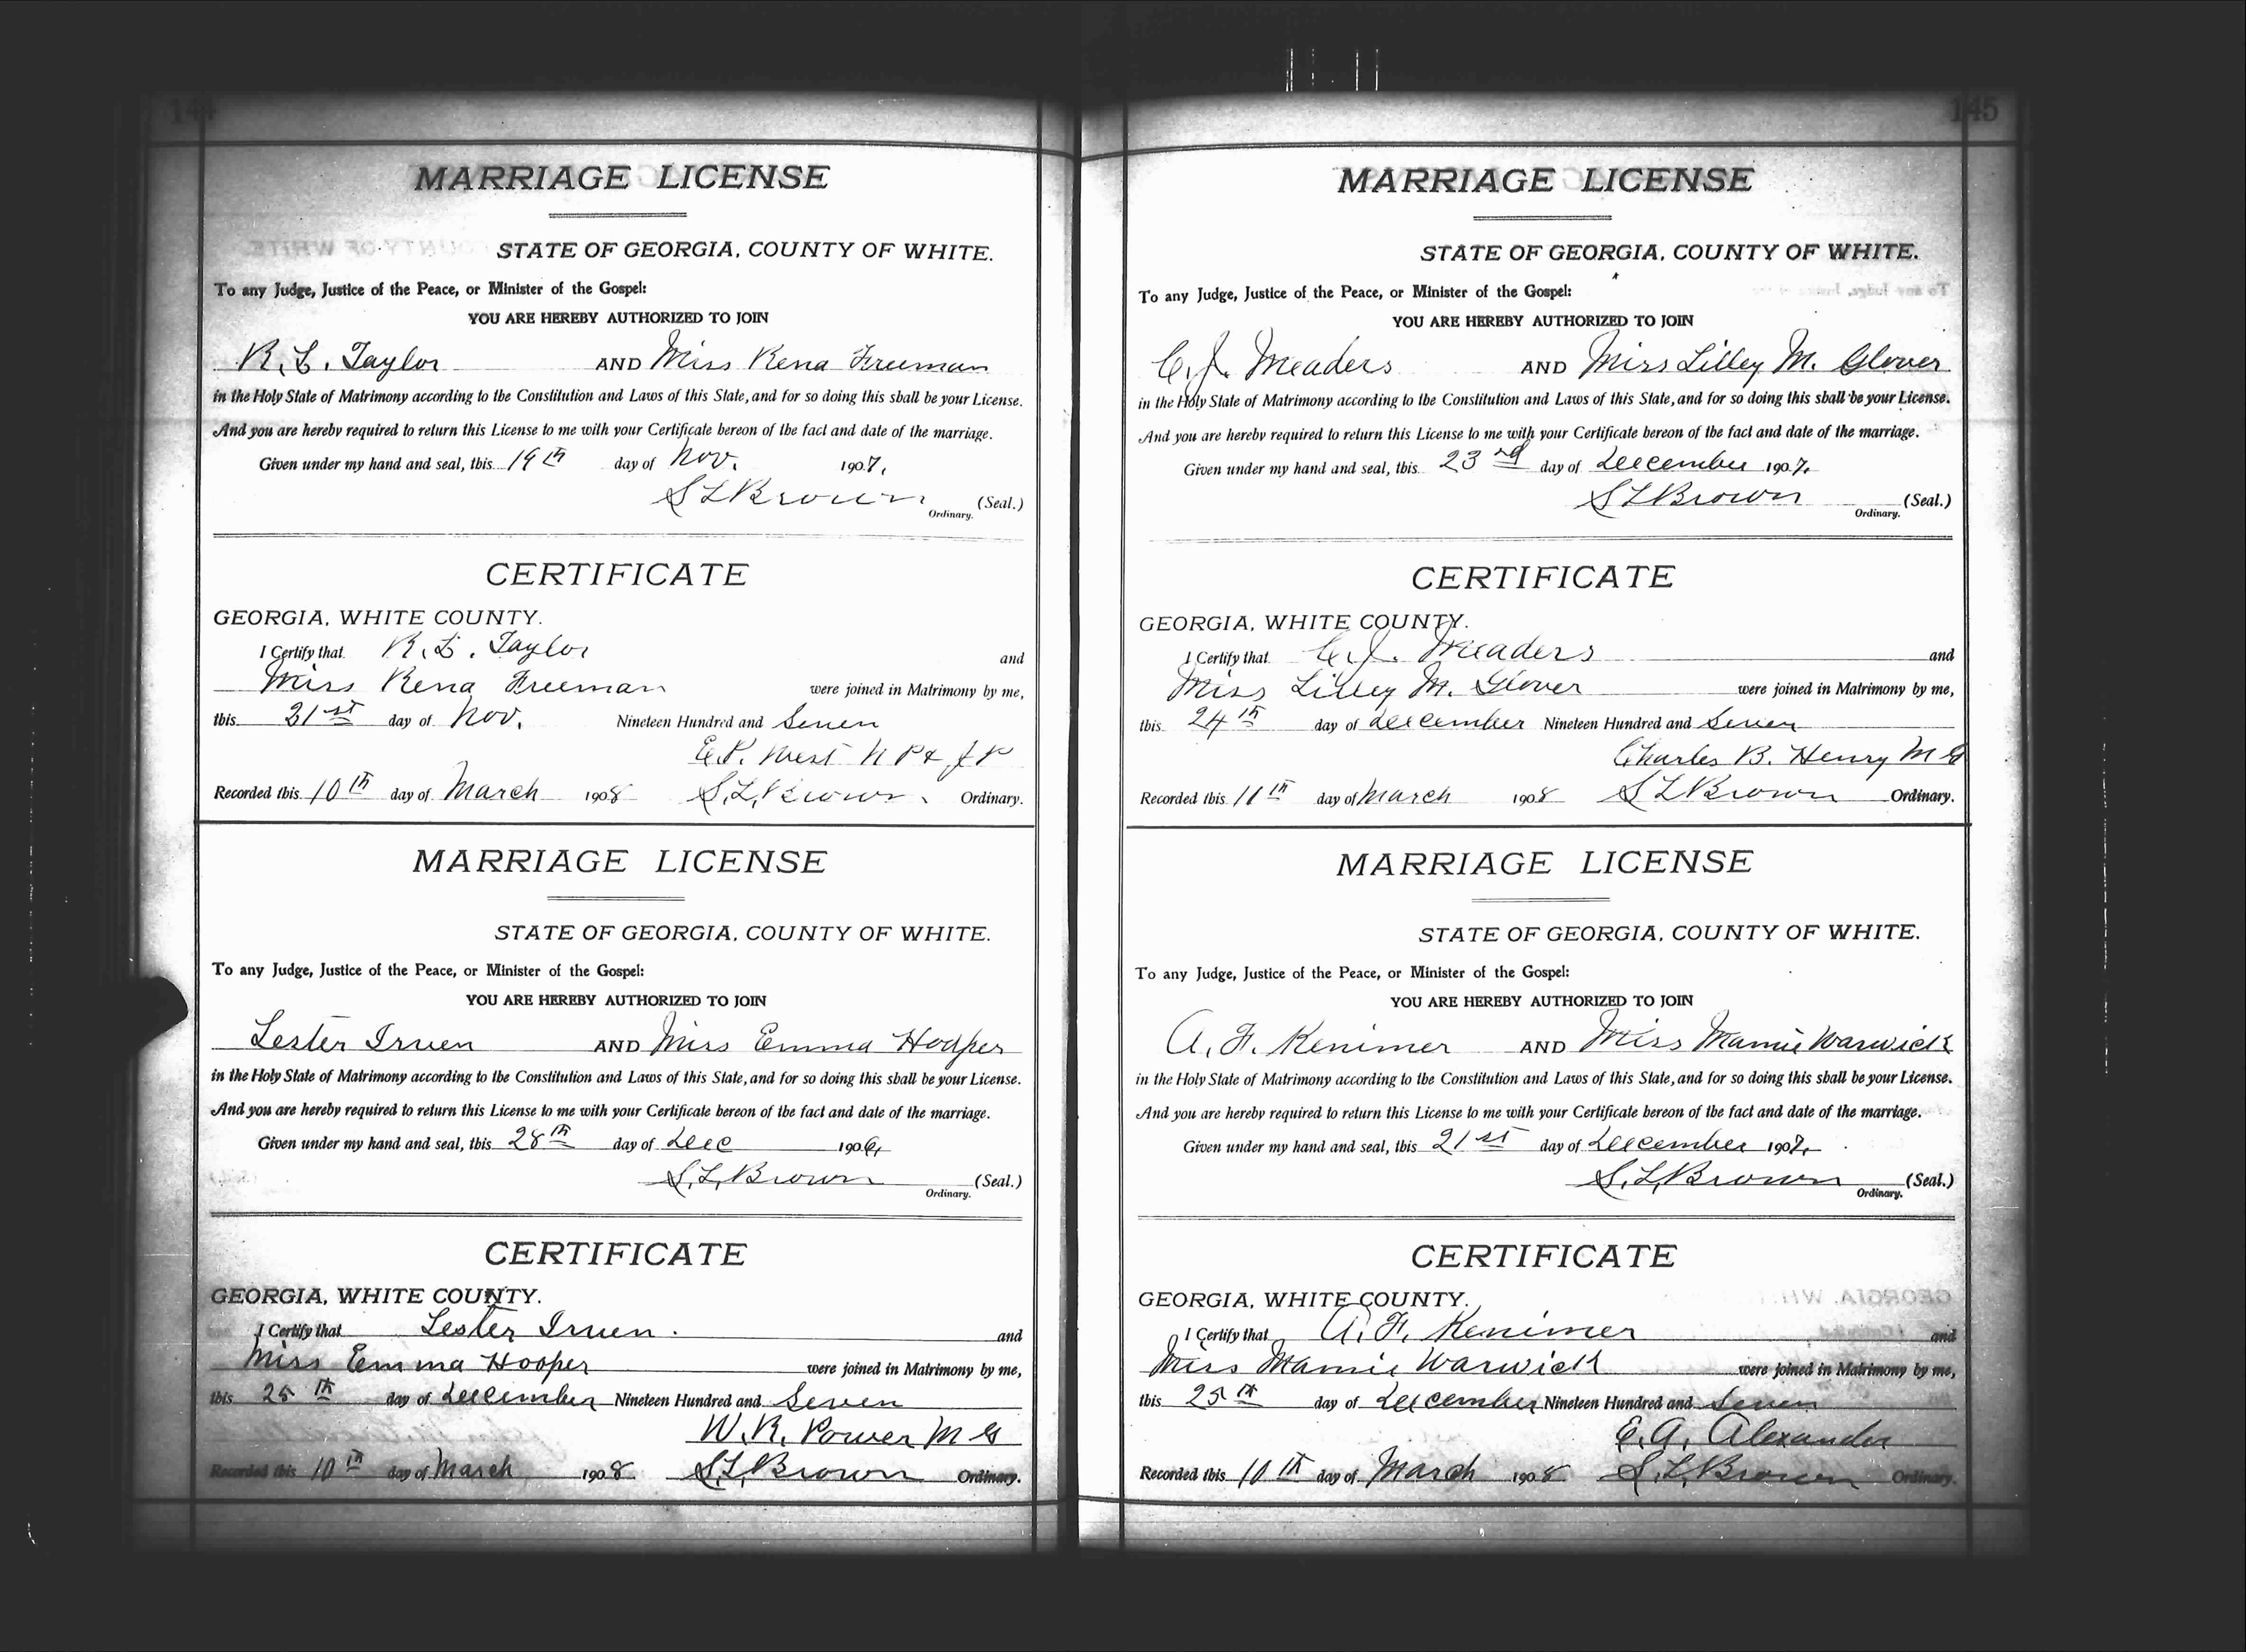 144
MARRIAGE LICENSE
STATE OF GEORGIA, COUNTY OF WHITE.
To any Judge, Justice of the Peace, or Minister of the Gospel:
YOU ARE HEREBY AUTHORIZED TO JOIN
R. L. Taylor AND Miss Rena Freeman
in the Holy State of Matrimony according to the Constitution and Laws of this State, and for so doing this shall be your License.
And you are hereby required to return this License to me with your Certificate hereon of the fact and date of the marriage.
Given under my hand and seal, this 19th day of Nov. 1907.
S L Brown (Seal.)
Ordinary.
CERTIFICATE
GEORGIA, WHITE COUNTY.
I Certify that R. L. Taylor and
Miss Rena Freeman were joined in Matrimony by me,
this 21st day of Nov. Nineteen Hundred and Seven
E. P. West N P & J P
Recorded this 10th day of March 1908 S. L. Brown. Ordinary.
MARRIAGE LICENSE
STATE OF GEORGIA, COUNTY OF WHITE.
To any Judge, Justice of the Peace, or Minister of the Gospel:
YOU ARE HEREBY AUTHORIZED TO JOIN
Lester Irven AND Miss Emma Hooper
in the Holy State of Matrimony according to the Constitution and Laws of this State, and for so doing this shall be your License.
And you are hereby required to return this License to me with your Certificate hereon of the fact and date of the marriage.
Given under my hand and seal, this 28th day of Dec 1906,
S. L. Brown (Seal.)
Ordinary.
CERTIFICATE
GEORGIA, WHITE COUNTY.
I Certify that Lester Irven. and
Miss Emma Hooper were joined in Matrimony by me,
this 25th day of December Nineteen Hundred and Seven
W. R. Power M G
Recorded this 10th day of March 1908 S. L. Brown Ordinary.
145
MARRIAGE LICENSE
STATE OF GEORGIA, COUNTY OF WHITE.
To any Judge, Justice of the Peace, or Minister of the Gospel:
YOU ARE HEREBY AUTHORIZED TO JOIN
C. J. Meaders AND Miss Lilley M. Glover
in the Holy State of Matrimony according to the Constitution and Laws of this State, and for so doing this shall be your License.
And you are hereby required to return this License to me with your Certificate hereon of the fact and date of the marriage.
Given under my hand and seal, this 23rd day of December 1907.
S L Brown (Seal.)
Ordinary.
CERTIFICATE
GEORGIA, WHITE COUNTY.
I Certify that C. J. Meaders and
Miss Lilley M. Glover were joined in Matrimony by me,
this 24th day of December Nineteen Hundred and Seven
Charles B. Henry M G
Recorded this 11th day of March 1908 S L Brown Ordinary.
MARRIAGE LICENSE
STATE OF GEORGIA, COUNTY OF WHITE.
To any Judge, Justice of the Peace, or Minister of the Gospel:
YOU ARE HEREBY AUTHORIZED TO JOIN
A. F. Kenimer AND Miss Mamie Warwick
in the Holy State of Matrimony according to the Constitution and Laws of this State, and for so doing this shall be your License.
And you are hereby required to return this License to me with your Certificate hereon of the fact and date of the marriage.
Given under my hand and seal, this 21st day of December 1907.
S. L. Brown (Seal.)
Ordinary.
CERTIFICATE
GEORGIA, WHITE COUNTY.
I Certify that A. F. Kenimer and
Miss Mamie Warwick were joined in Matrimony by me,
this 25th day of December Nineteen Hundred and Seven
E. A. Alexander
Recorded this 10th day of March 1908 S. L. Brown Ordinary.